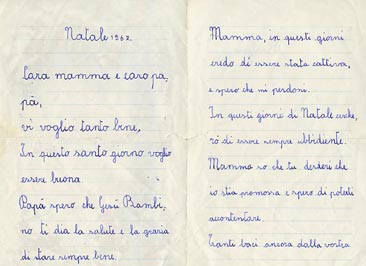 Natale 1962.
Cara mamma e caro pa-
pà,
vi voglio tanto bene,
In questo santo giorno voglio
essere buona.
Papà spero che Gesù Bambi,
no ti dia la salute e la grazia
di stare sempre bene.
Mamma, in questi giorni
credo di essere stata cattiva,
e spero che mi perdoni.
In questi giorni di Natale cerche,
rò di essere sempre ubbidiente.
Mamma so che tu desideri che
io stia promossa e spero di poterti
accontentare.
Tanti baci ancora dalla vostra